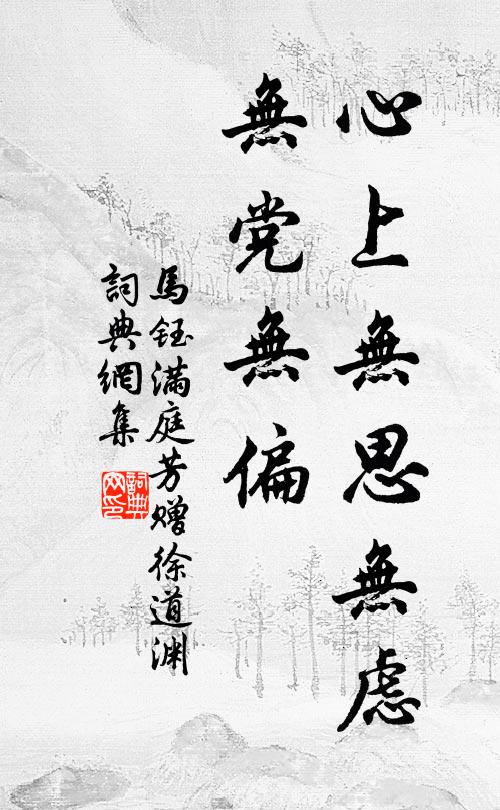 心上無思無慮
無党無偏
馬鈺滿庭芳贈徐道渊
詞典網集
詞典
网印